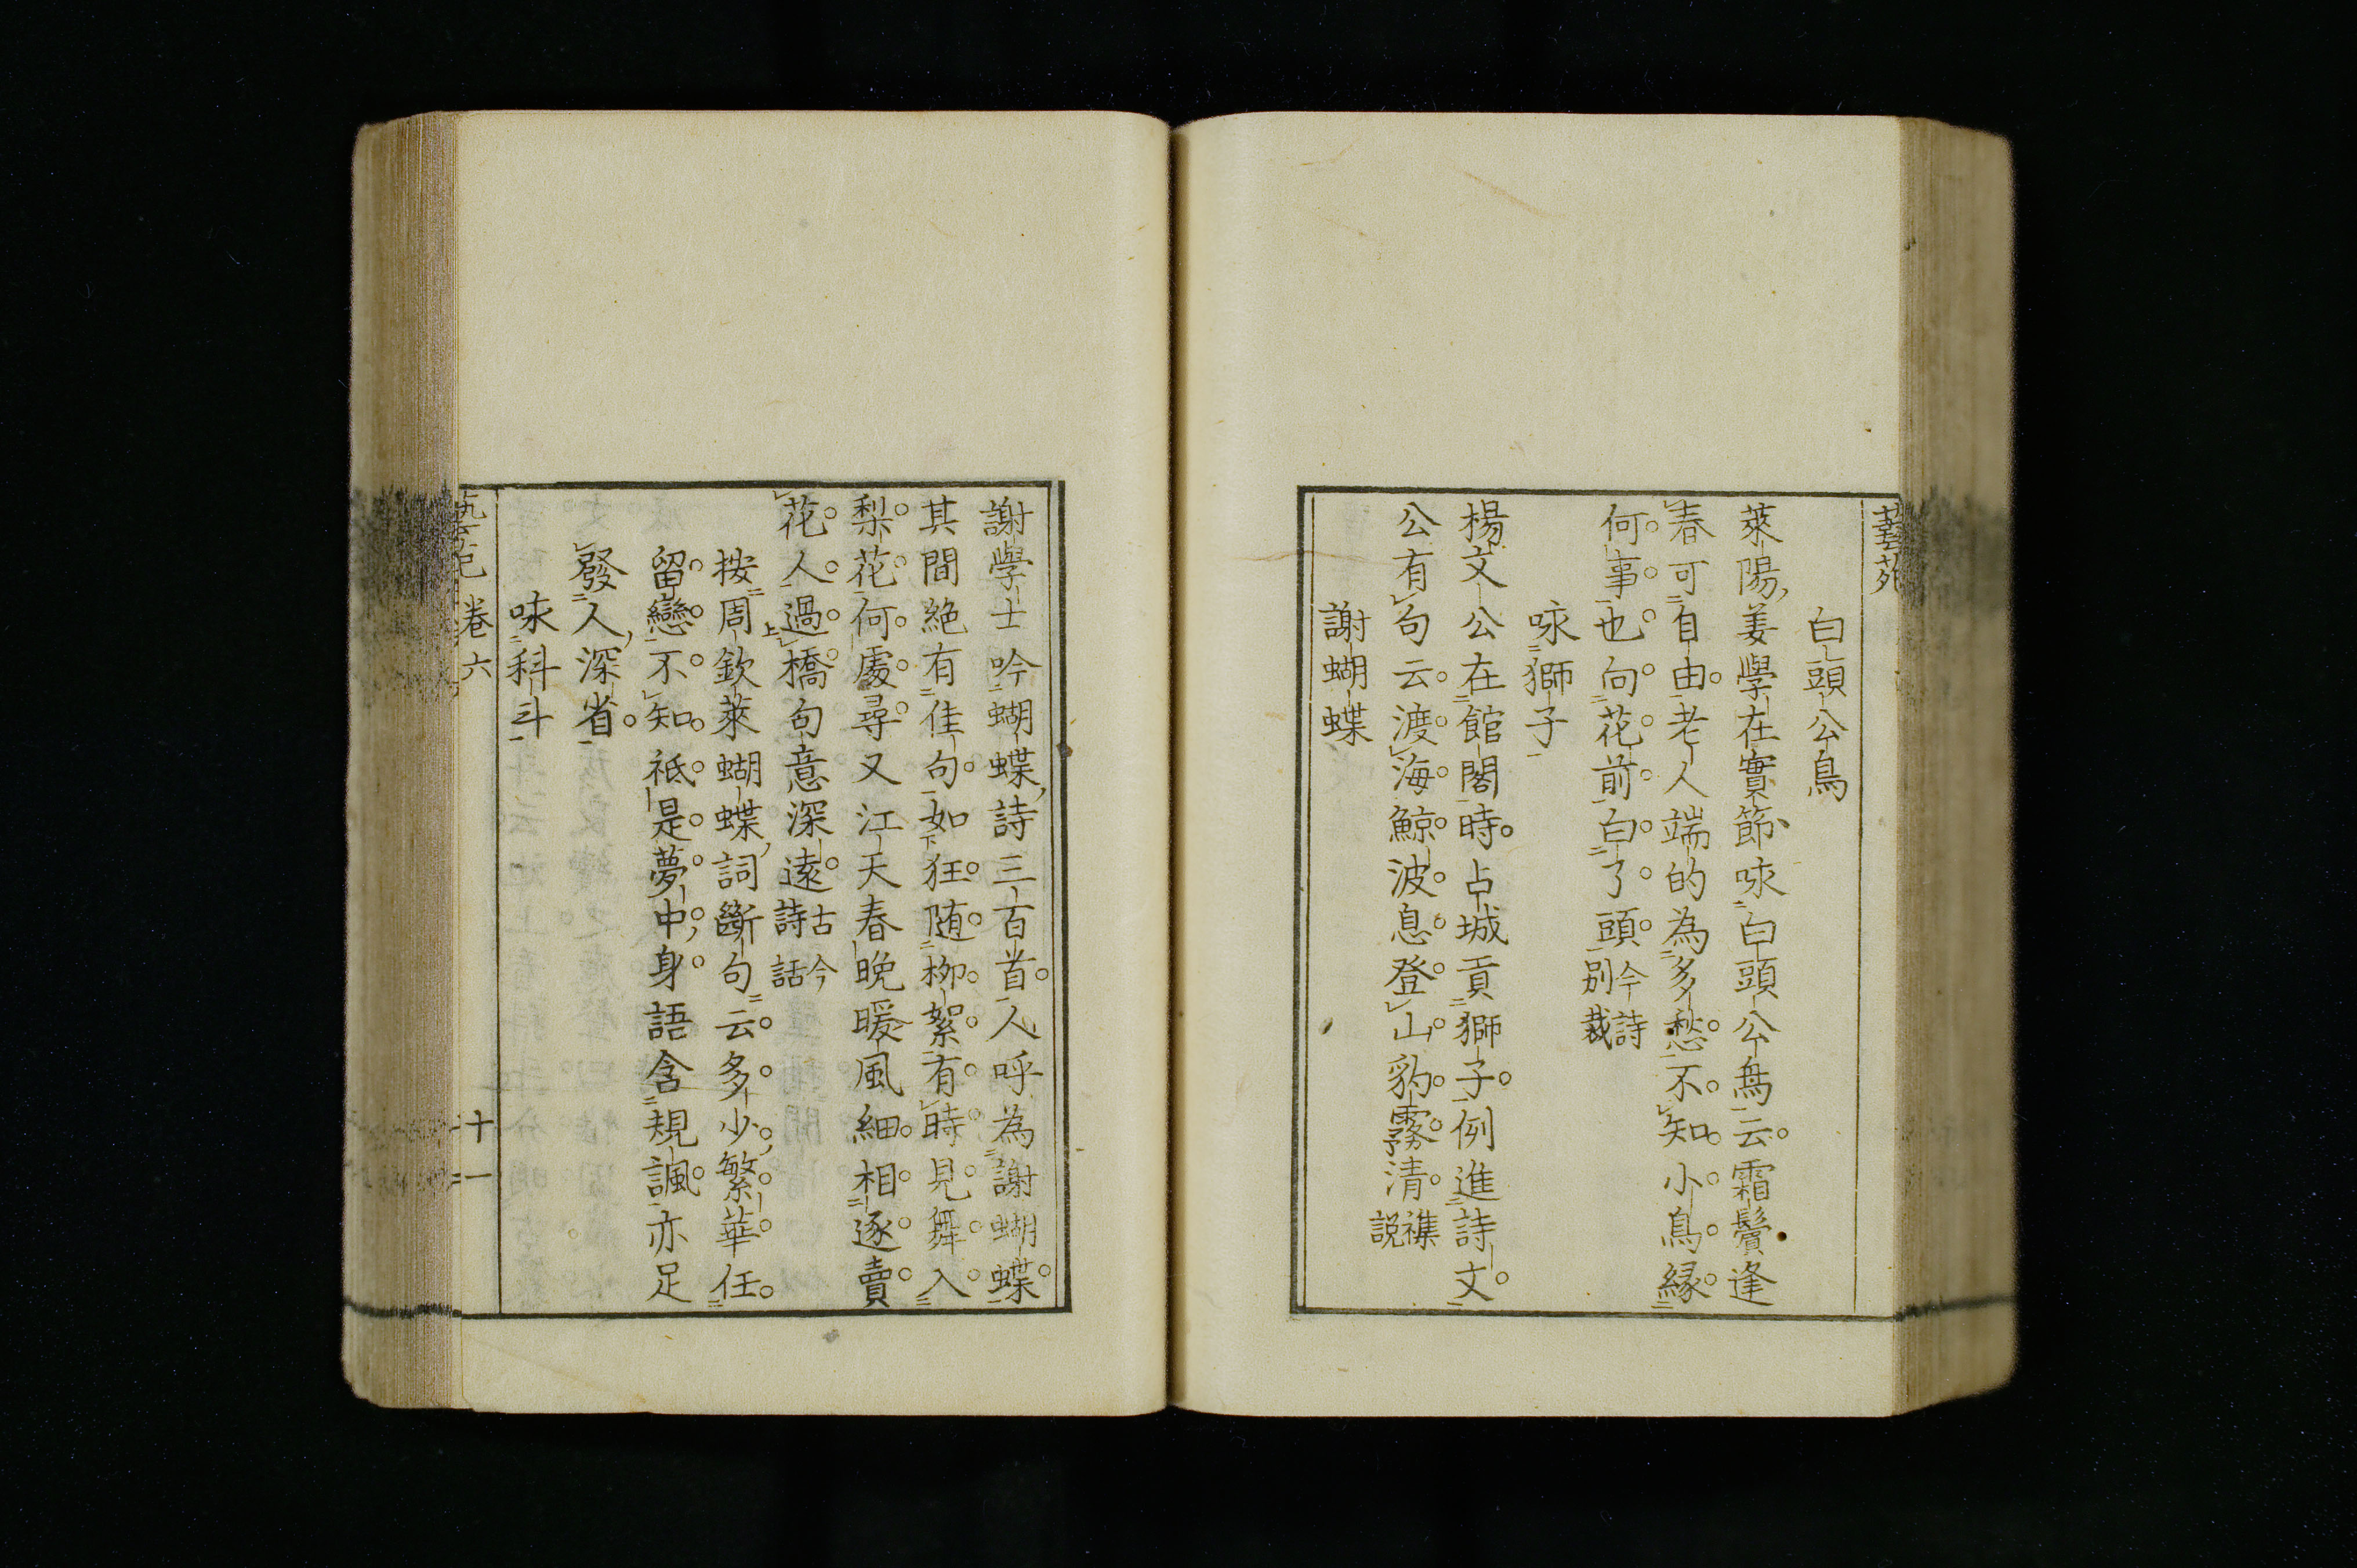 藝苑
白頭公鳥
萊陽姜學在實節咏白頭公鳥云霜鬢逢
春可自由老人端的為多愁不知小鳥緣
何事也向花前白了頭今詩別裁
咏獅子
楊文公在館閣時占城貢獅子例進詩文
公有句云渡海鯨波息登山豹霧清襍説
謝蝴蝶
謝學士吟蝴蝶詩三百首人呼為謝蝴蝶
其間絕有佳句如狂随栁絮有時見舞入
梨花何處尋又江天春晚暖風細相逐賣
花人過橋句意深遠古今詩話
按周欽萊蝴蝶詞斷句云多少繁華任
留戀不知祗是夢中身語含規諷亦足
發人深省
咏科斗
卷六
十一